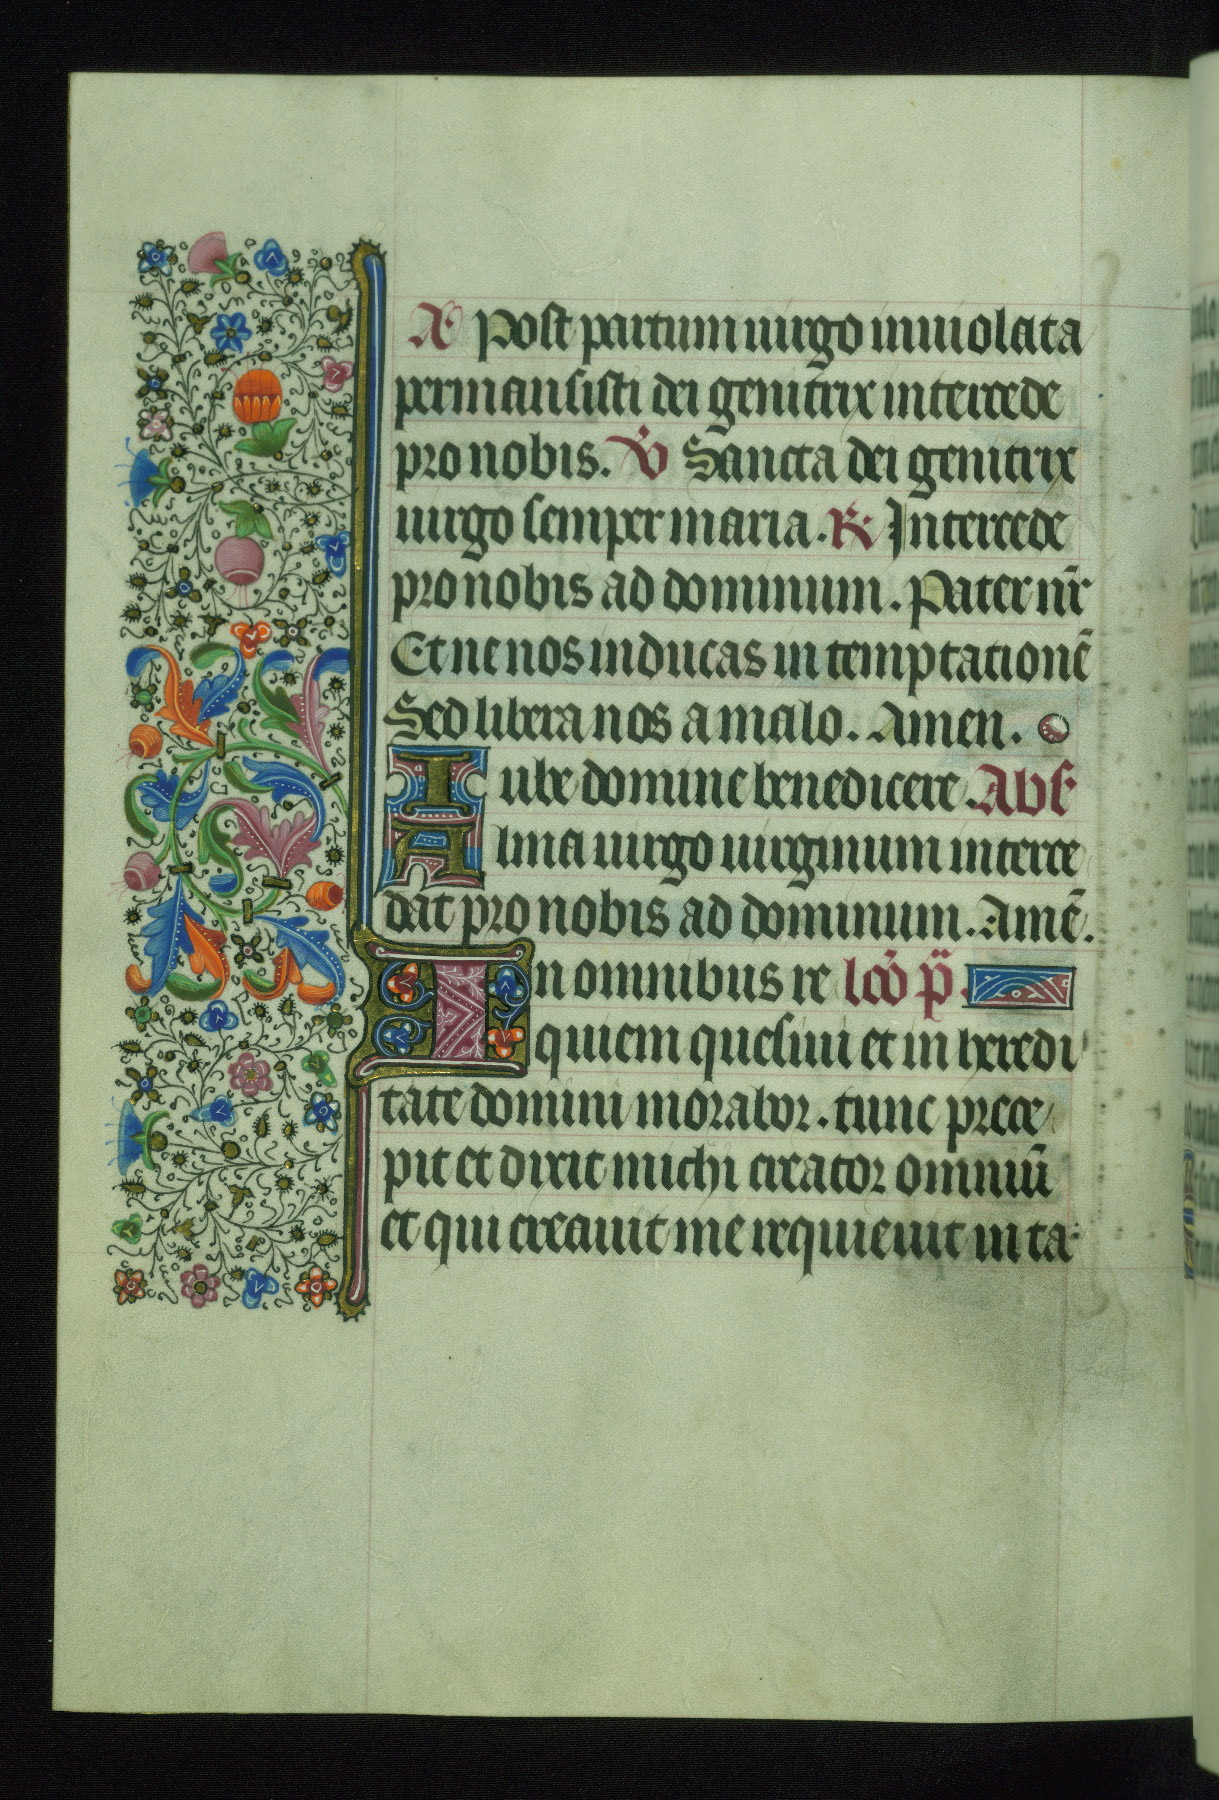 A Post partum uirgo inuiolata
permansisti dei genitrix intercede
pro nobis. V̇ Sancta dei genitrix
uirgo semper maria. R Intercede
pro nobis ad dominum. Pater nr̄
Et ne nos inducas in temptationē
Sed libera nos a malo. Amen.
Iube domine benedicere. Abs
Alma uirgo uirginum interce
dat pro nobis ad dominum. Amē.
In omnibus re lc̄o p̄
quiem quesiui et in heredi
tate domini morabor. tunc prece
pit et dixit michi creator omniū
et qui creauit me requieuit in ta